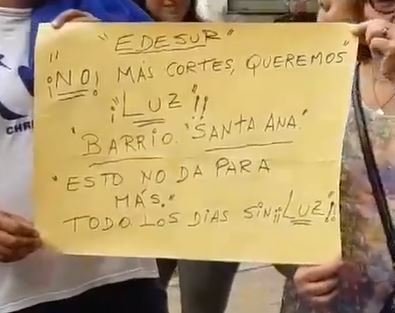 "EDESUR"
"¡NO! MÁS CORTES, QUEREMOS"
¡¡LUZ!!
"BARRIO. "SANTA ANA."
"ESTO NO DA PARA
MÁS."
TODO LOS DIAS SIN ¡¡LUZ!!
CHRI